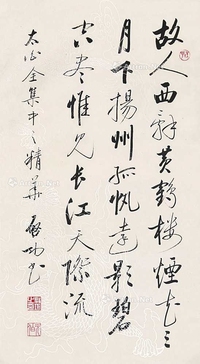 故人西辞黄鹤楼烟花三
月下揚州孤帆遠影碧
空盡惟見长江天際流
太白全集中之精華 啟功书